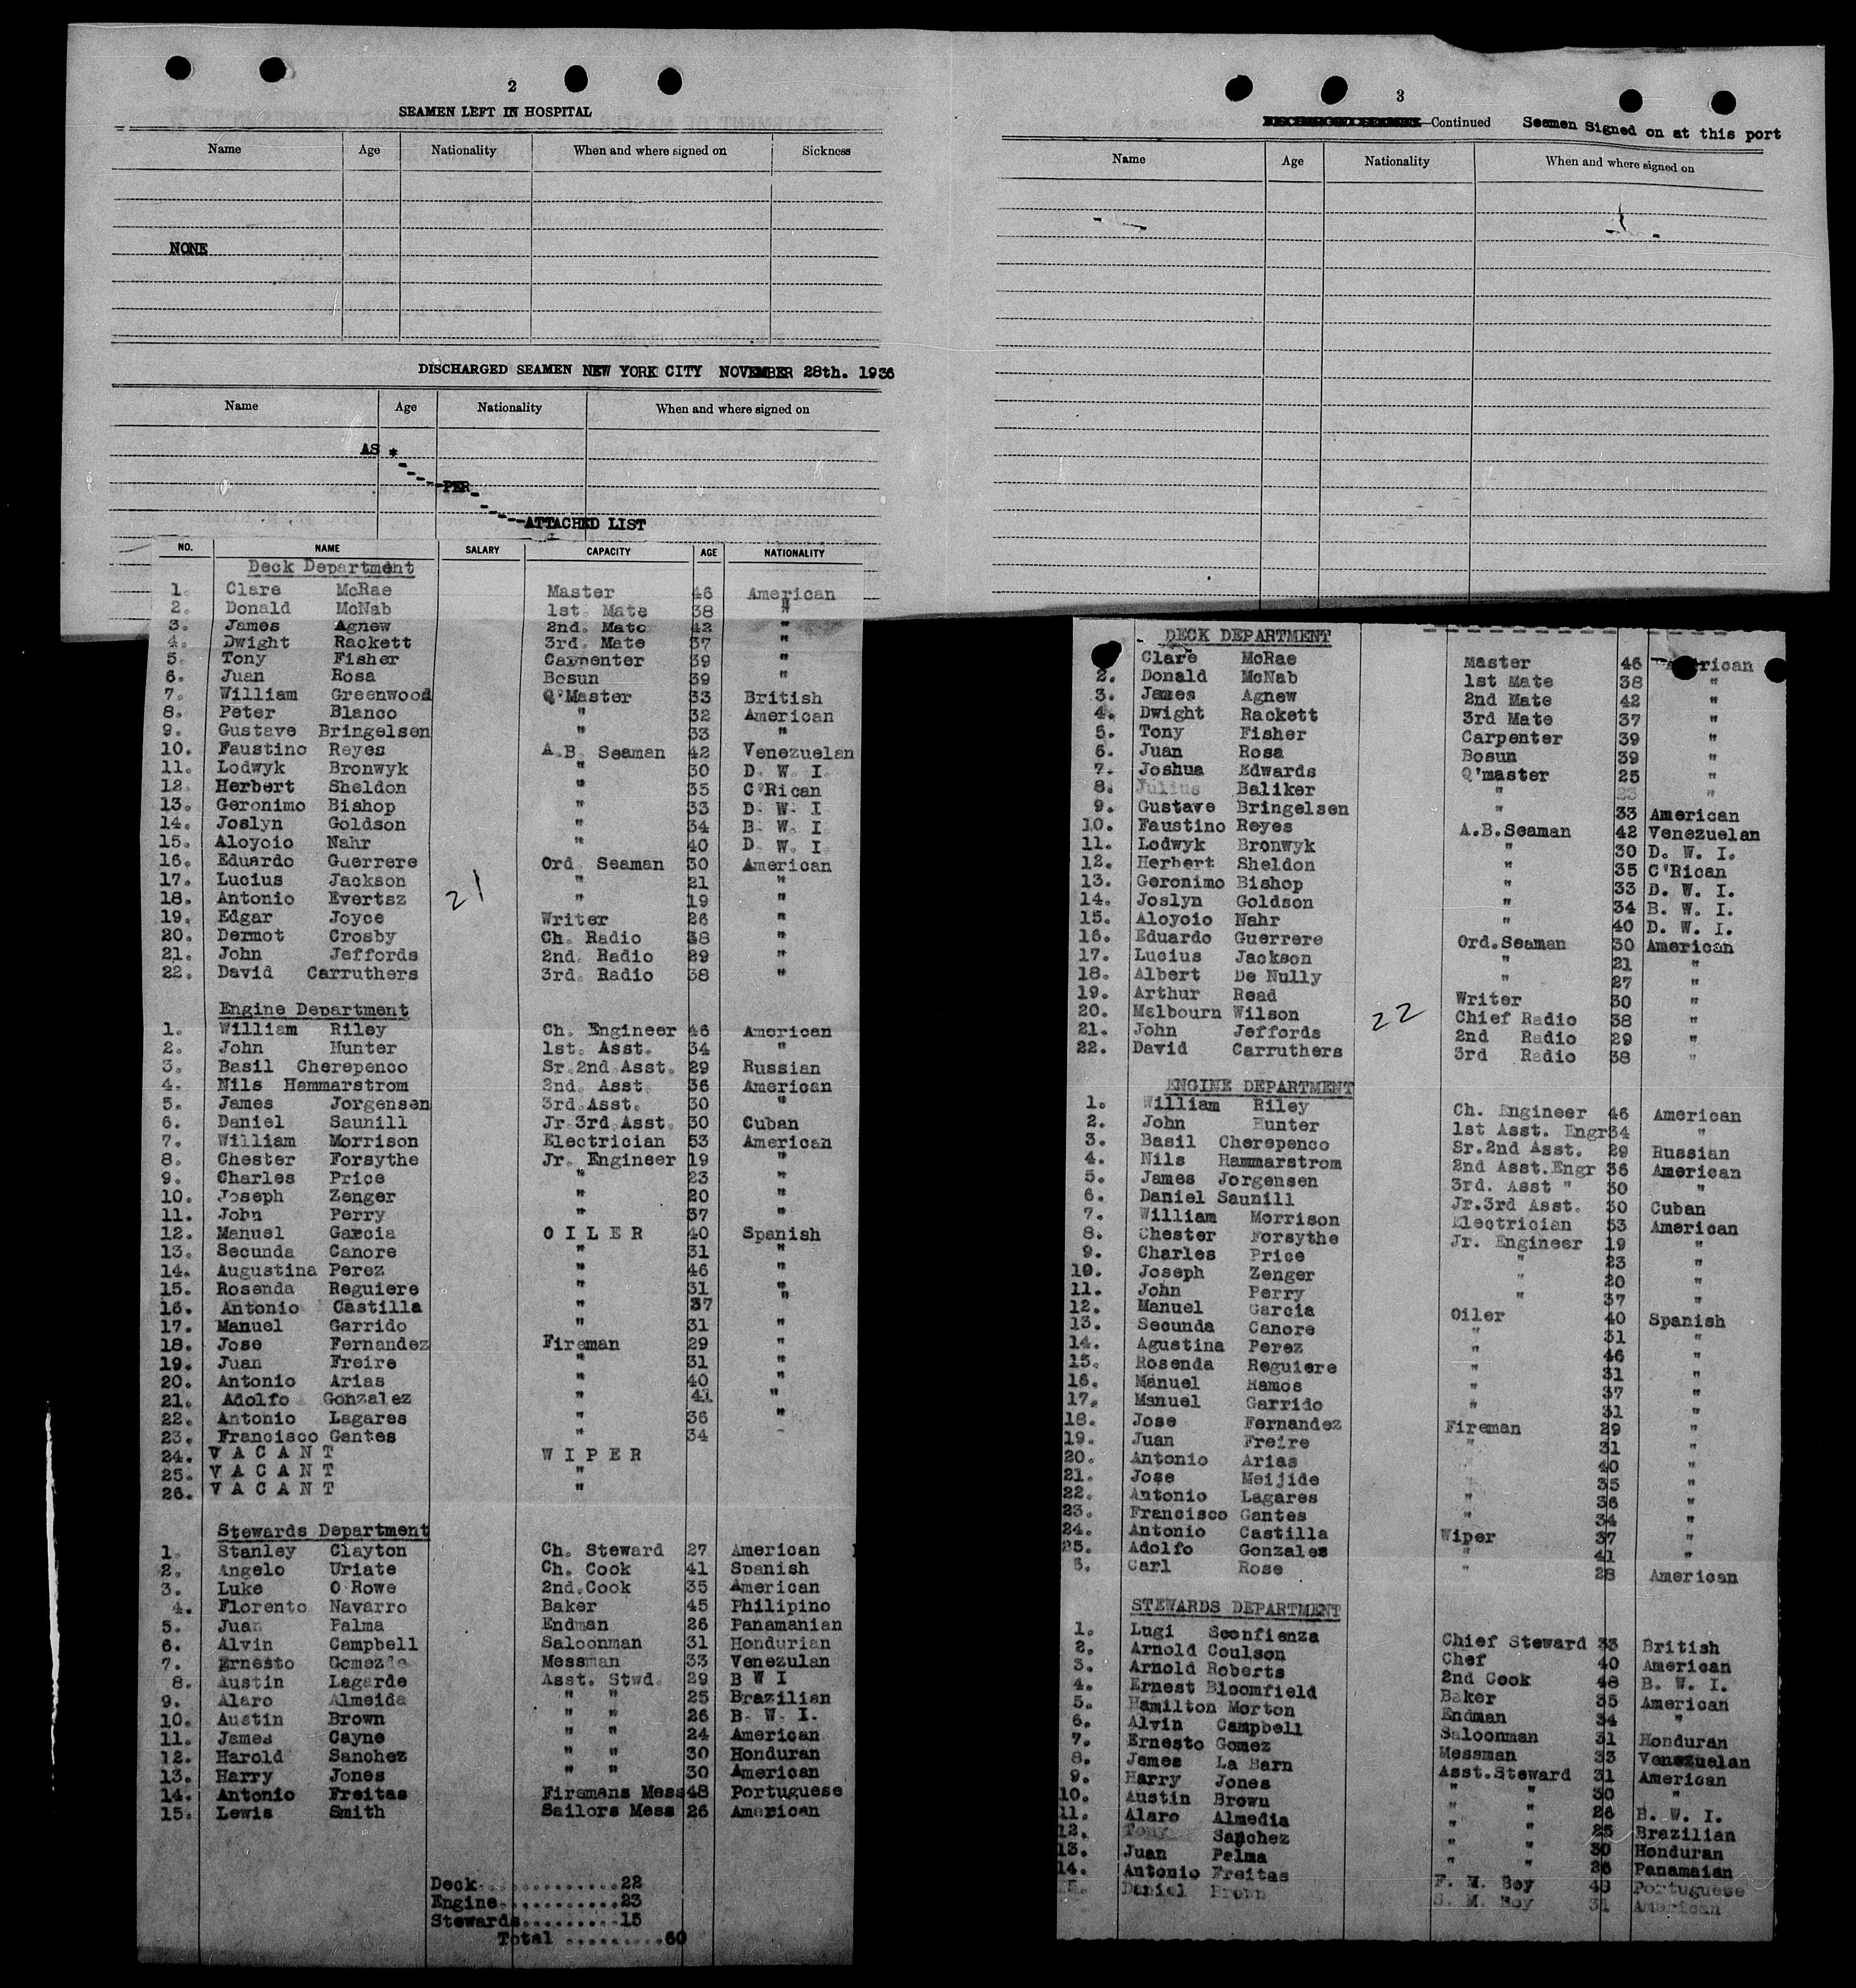 2
SEAMEN LEFT IN HOSPITAL
Name Age Nationality When and where signed on Sickness
NONE
DISCHARGED SEAMEN NEW YORK CITY NOVEMBER 28th. 1936
Name Age Nationality When and where signed on
AS *
PER
ATTACHED LIST
NO. NAME SALARY CAPACITY AGE NATIONALITY
Deck Department
1. Clare McRae Master 46 American
2. Donald McNab 1st. Mate 38 "
3. James Agnew 2nd. Mate 42 "
4. Dwight Rackett 3rd. Mate 37 "
5. Tony Fisher Carpenter 39 "
6. Juan Rosa Bosun 39 "
7. William Greenwood Q'Master 33 British
8. Peter Blanco " 32 American
9. Gustave Bringelsen " 33 "
10. Faustino Reyes A.B. Seaman 42 Venezuelan
11. Lodwyk Bronwyk " 30 D. W. I.
12. Herbert Sheldon " 35 C'Rican
13. Geronimo Bishop " 33 D. W. I
14. Joslyn Goldson " 34 B. W. I
15. Aloyoio Nahr " 40 D. W. I
16. Eduardo Guerrere Ord Seaman 30 American
17. Lucius Jackson " 21 "
18. Antonio Evertsz 21 " 19 "
19. Edgar Joyce Writer 26 "
20. Dermot Crosby Ch. Radio 38 "
21. John Jeffords 2nd. Radio 29 "
22. David Carruthers 3rd. Radio 38 "
Engine Department
1. William Riley Ch. Engineer 46 American
2. John Hunter 1st. Asst. 34 "
3. Basil Cherepenco Sr.2nd Asst. 29 Russian
4. Nils Hammarstrom 2nd. Asst 36 American
5. James Jorgensen 3rd.Asst. 30 "
6. Daniel Saunill Jr 3rd Asst. 30 Cuban
7. William Morrison Electrician 53 American
8. Chester Forsythe Jr. Engineer 19 "
9. Charles Price " 23 "
10. Joseph Zenger " 20 "
11. John Perry " 37 "
12. Manuel Garcia O I L E R 40 Spanish
13. Secunda Canore " 31 "
14. Augustina Perez " 46 "
15. Rosenda Reguiere " 31 "
16. Antonio Castilla " 37 "
17. Manuel Garrido " 31 "
18. Jose Fernandez Fireman 29 "
19. Juan Freire " 31 "
20. Antonio Arias " 40 "
21. Adolfo Gonzalez " 41 "
22. Antonio Lagares " 36 "
23. Francisco Gantes " 34
24. V A C A N T W I P E R
25. V A C A N T "
26. V A C A N T "
Stewards Department
1. Stanley Clayton Ch. Steward 27 American
2. Angelo Uriate Ch. Cook 41 Spanish
3. Luke O Rowe 2nd.Cook 35 American
4. Florento Navarro Baker 45 Philipino
5. Juan Palma Endman 26 Panamanian
6. Alvin Campbell Saloonman 31 Hondurian
7. Ernesto Gomez Messman 33 Venezulan
8. Austin Lagarde Asst. Stwd. 29 B W I
9. Alaro Almeida " " 25 Brazilian
10. Austin Brown " " 26 B. W. I.
11. James Cayne " " 24 American
12. Harold Sanchez " " 30 Honduran
13. Harry Jones " " 30 American
14. Antonio Freitas Firemans Mess 48 Portuguese
15. Lewis Smith Sailors Mess 26 American
Deck..............22
Engine............23
Stewards.........15
Total .........60
3
Continued Seamen Signed on at this port
Name Age Nationality When and where signed on
DECK DEPARTMENT
Clare McRae Master 46
2. Donald McNab 1st Mate 38 "
3. James Agnew 2nd Mate 42 "
4. Dwight Rackett 3rd Mate 37 "
5. Tony Fisher Carpenter 39 "
6. Juan Rosa Bosun 39 "
7. Joshua Edwards Q'master 25 "
8. Julius Baliker " 23 "
9. Gustave Bringelsen " 33 American
10. Faustino Reyes A.B.Seaman 42 Venezuelan
11. Lodwyk Bronwyk " 30 D. W. I.
12. Herbert Sheldon " 35 C'Rican
13. Geronimo Bishop " 33 D. W. I.
14. Joslyn Goldson " 34 B. W. I.
15. Aloyoio Nahr " 40 D. W. I.
16. Eduardo Guerrere Ord.Seaman 30 American
17. Lucius Jackson " 21 "
18. Albert De Nully " 27 "
19. Arthur Read Writer 30 "
20. Melbourn Wilson 22 Chief Radio 38 "
21. John Jeffords 2nd Radio 29 "
22. David Carruthers 3rd Radio 38 "
ENGINE DEPARTMENT
1. William Riley Ch. Engineer 46 American
2. John Hunter 1st Asst. Engr 34 "
3. Basil Cherepenco Sr.2nd Asst. 29 Russian
4. Nils Hammarstrom 2nd Asst.Engr 36 American
5. James Jorgensen 3rd. Asst " 30 "
6. Daniel Saunill Jr.3rd Asst. 30 Cuban
7. William Morrison Electrician 53 American
8. Chester Forsythe Jr. Engineer 19 "
9. Charles Price " 23 "
10. Joseph Zenger " 20 "
11. John Perry " 37 "
12. Manuel Garcia Oiler 40 Spanish
13. Secunda Canore " 31 "
14. Agustina Perez " 46 "
15. Rosenda Reguiere " 31 "
16. Manuel Ramos " 37 "
17. Manuel Garrido " 31 "
18. Jose Fernandez Fireman 29 "
19. Juan Freire " 31 "
20. Antonio Arias " 40 "
21. Jose Meijide " 35 "
22. Antonio Lagares " 36 "
23. Francisco Gantes " 34 "
24. Antonio Castilla Wiper 37 "
25. Adolfo Gonzales " 41 "
6. Carl Rose " 28 American
STEWARDS DEPARTMENT
1. Lugi Sconfienza Chief Steward 33 British
2. Arnold Coulson Chef 40 American
3. Arnold Roberts 2nd Cook 48 B. W. I.
4. Ernest Bloomfield Baker 35 American
5. Hamilton Morton Endman 34 "
6. Alvin Campbell Saloonman 31 Honduran
7. Ernesto Gomez Messman 33 Venezuelan
8. James La Barn Asst.Steward 31 American
9. Harry Jones " " 30 "
10. Austin Brown " " 26 B. W. I.
11. Alaro Almedia " " 25 Brazilian
12. Tony Sanchez " " 30 Honduran
13. Juan Palma " " 26 Panamaian
14. Antonio Freitas F. M. Boy 48 Portuguese
5. Daniel Brown S. M. Boy 31 American